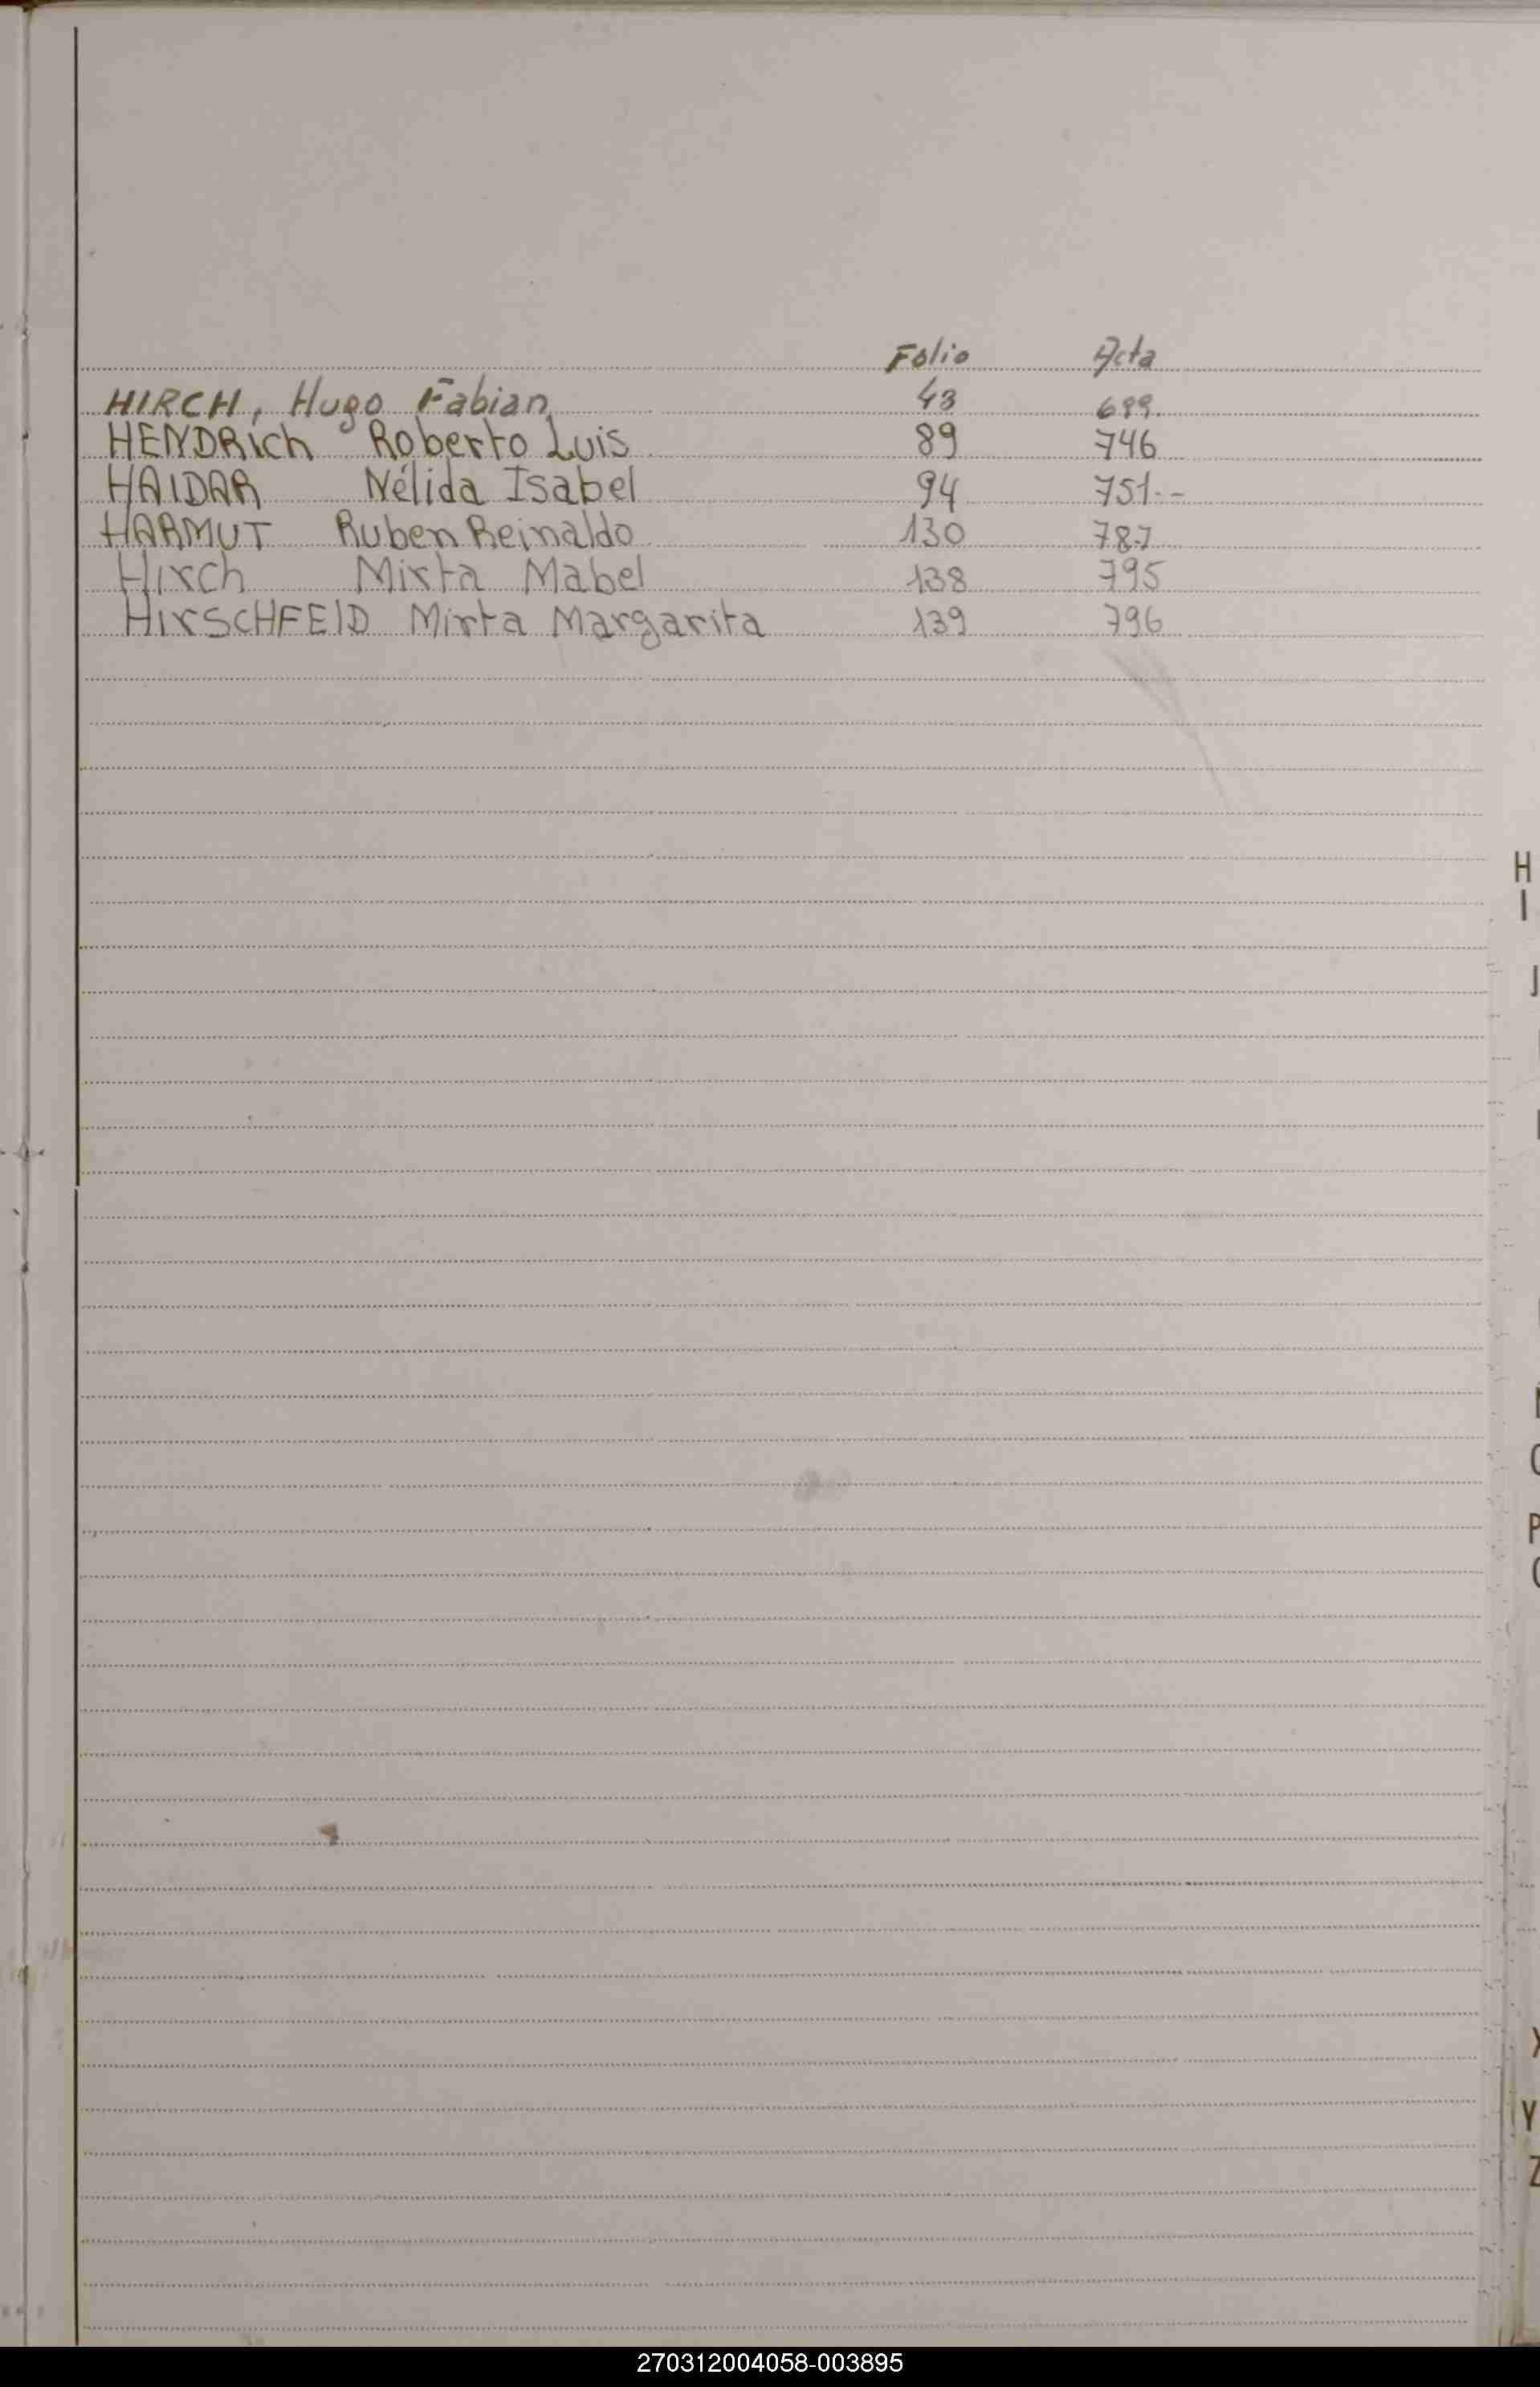 Folio Acta
HIRCH, Hugo Fabian 43 699
HENDRich Roberto Luis 89 746
HAIDAR Nélida Isabel 94 751.-
HARMUT Ruben Reinaldo 130 787
Hirch Mirta Mabel 138 795
HirSCHFElD Mirta Margarita 139 796
H
I
J
P
Y
Z
270312004058-003895